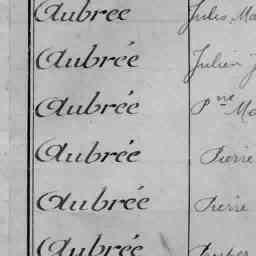 Aubrée Jules Ma
Aubrée Julien J
Aubrée Pne Ma
Aubrée Pierre
Aubrée Pierre
Aubrée Prosper